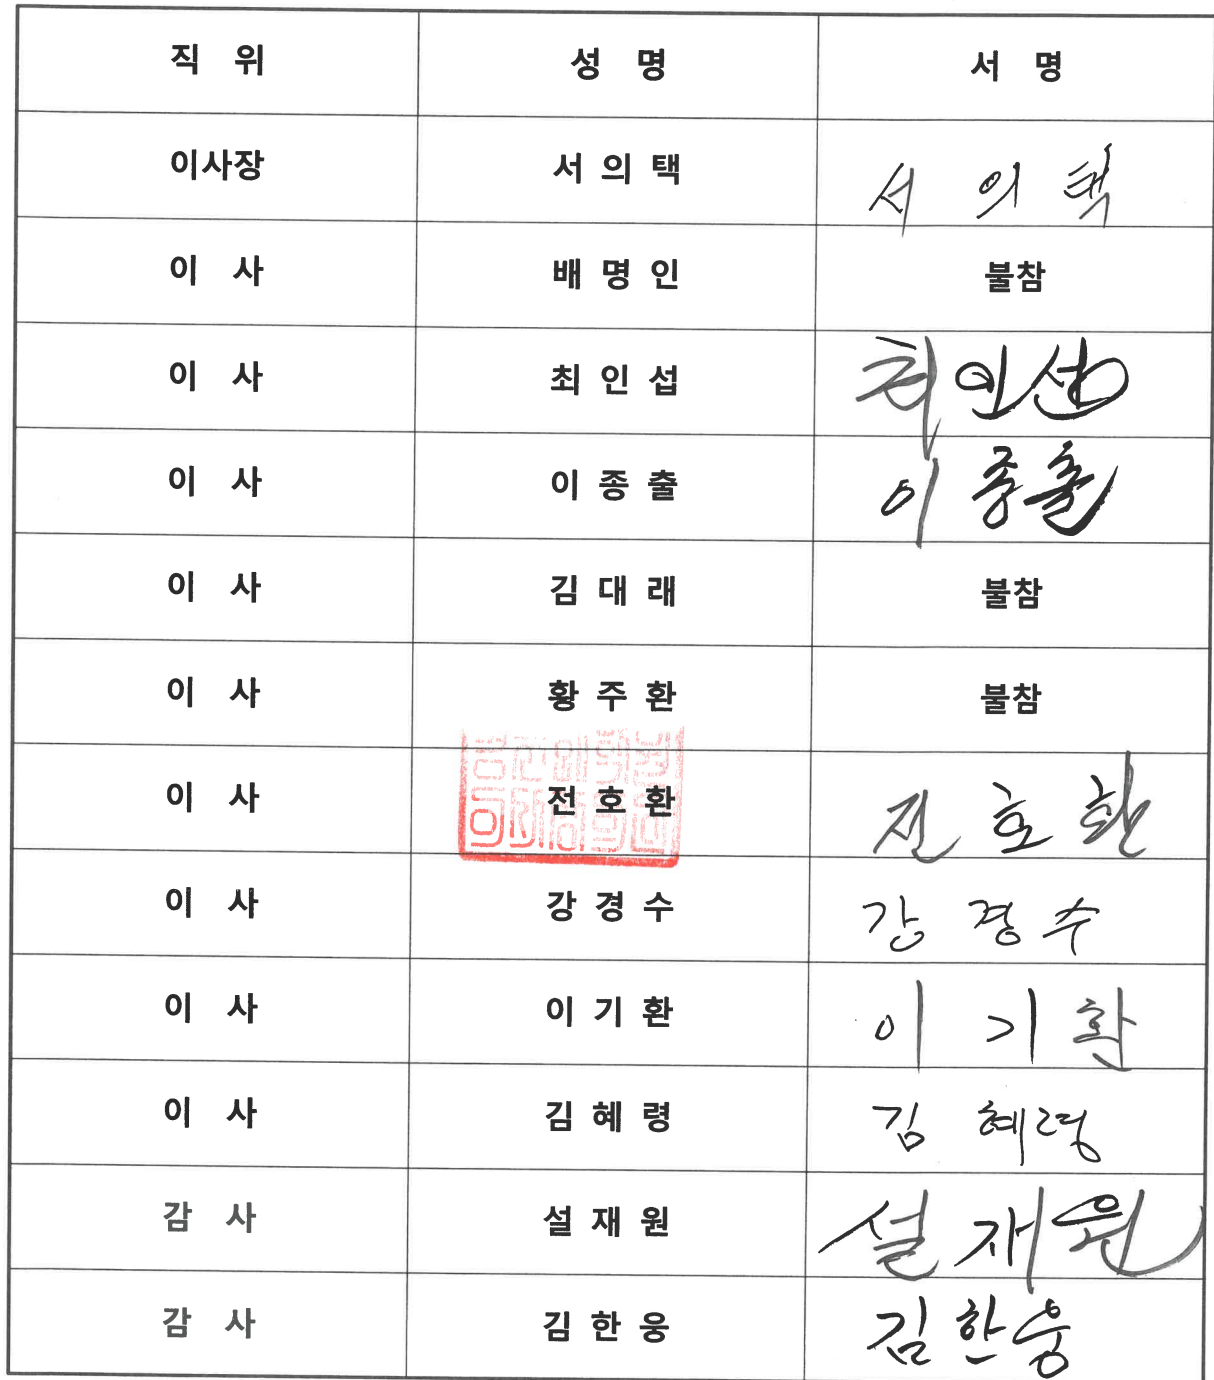 직 위 성 명 서 명
이사장 서 의 택 서 의 택
이 사 배 명 인 불참
이 사 최 인 섭 최 인 섭
이 사 이 종 출 이 종 출
이 사 김 대 래 불참
이 사 황 주 환 불참
이 사 전 호 환 전 호 환
이 사 강 경 수 강 경 수
이 사 이 기 환 이 기 환
이 사 김 혜 령 김 혜 령
감 사 설 재 원 설 재 원
감 사 김 한 웅 김 한 웅